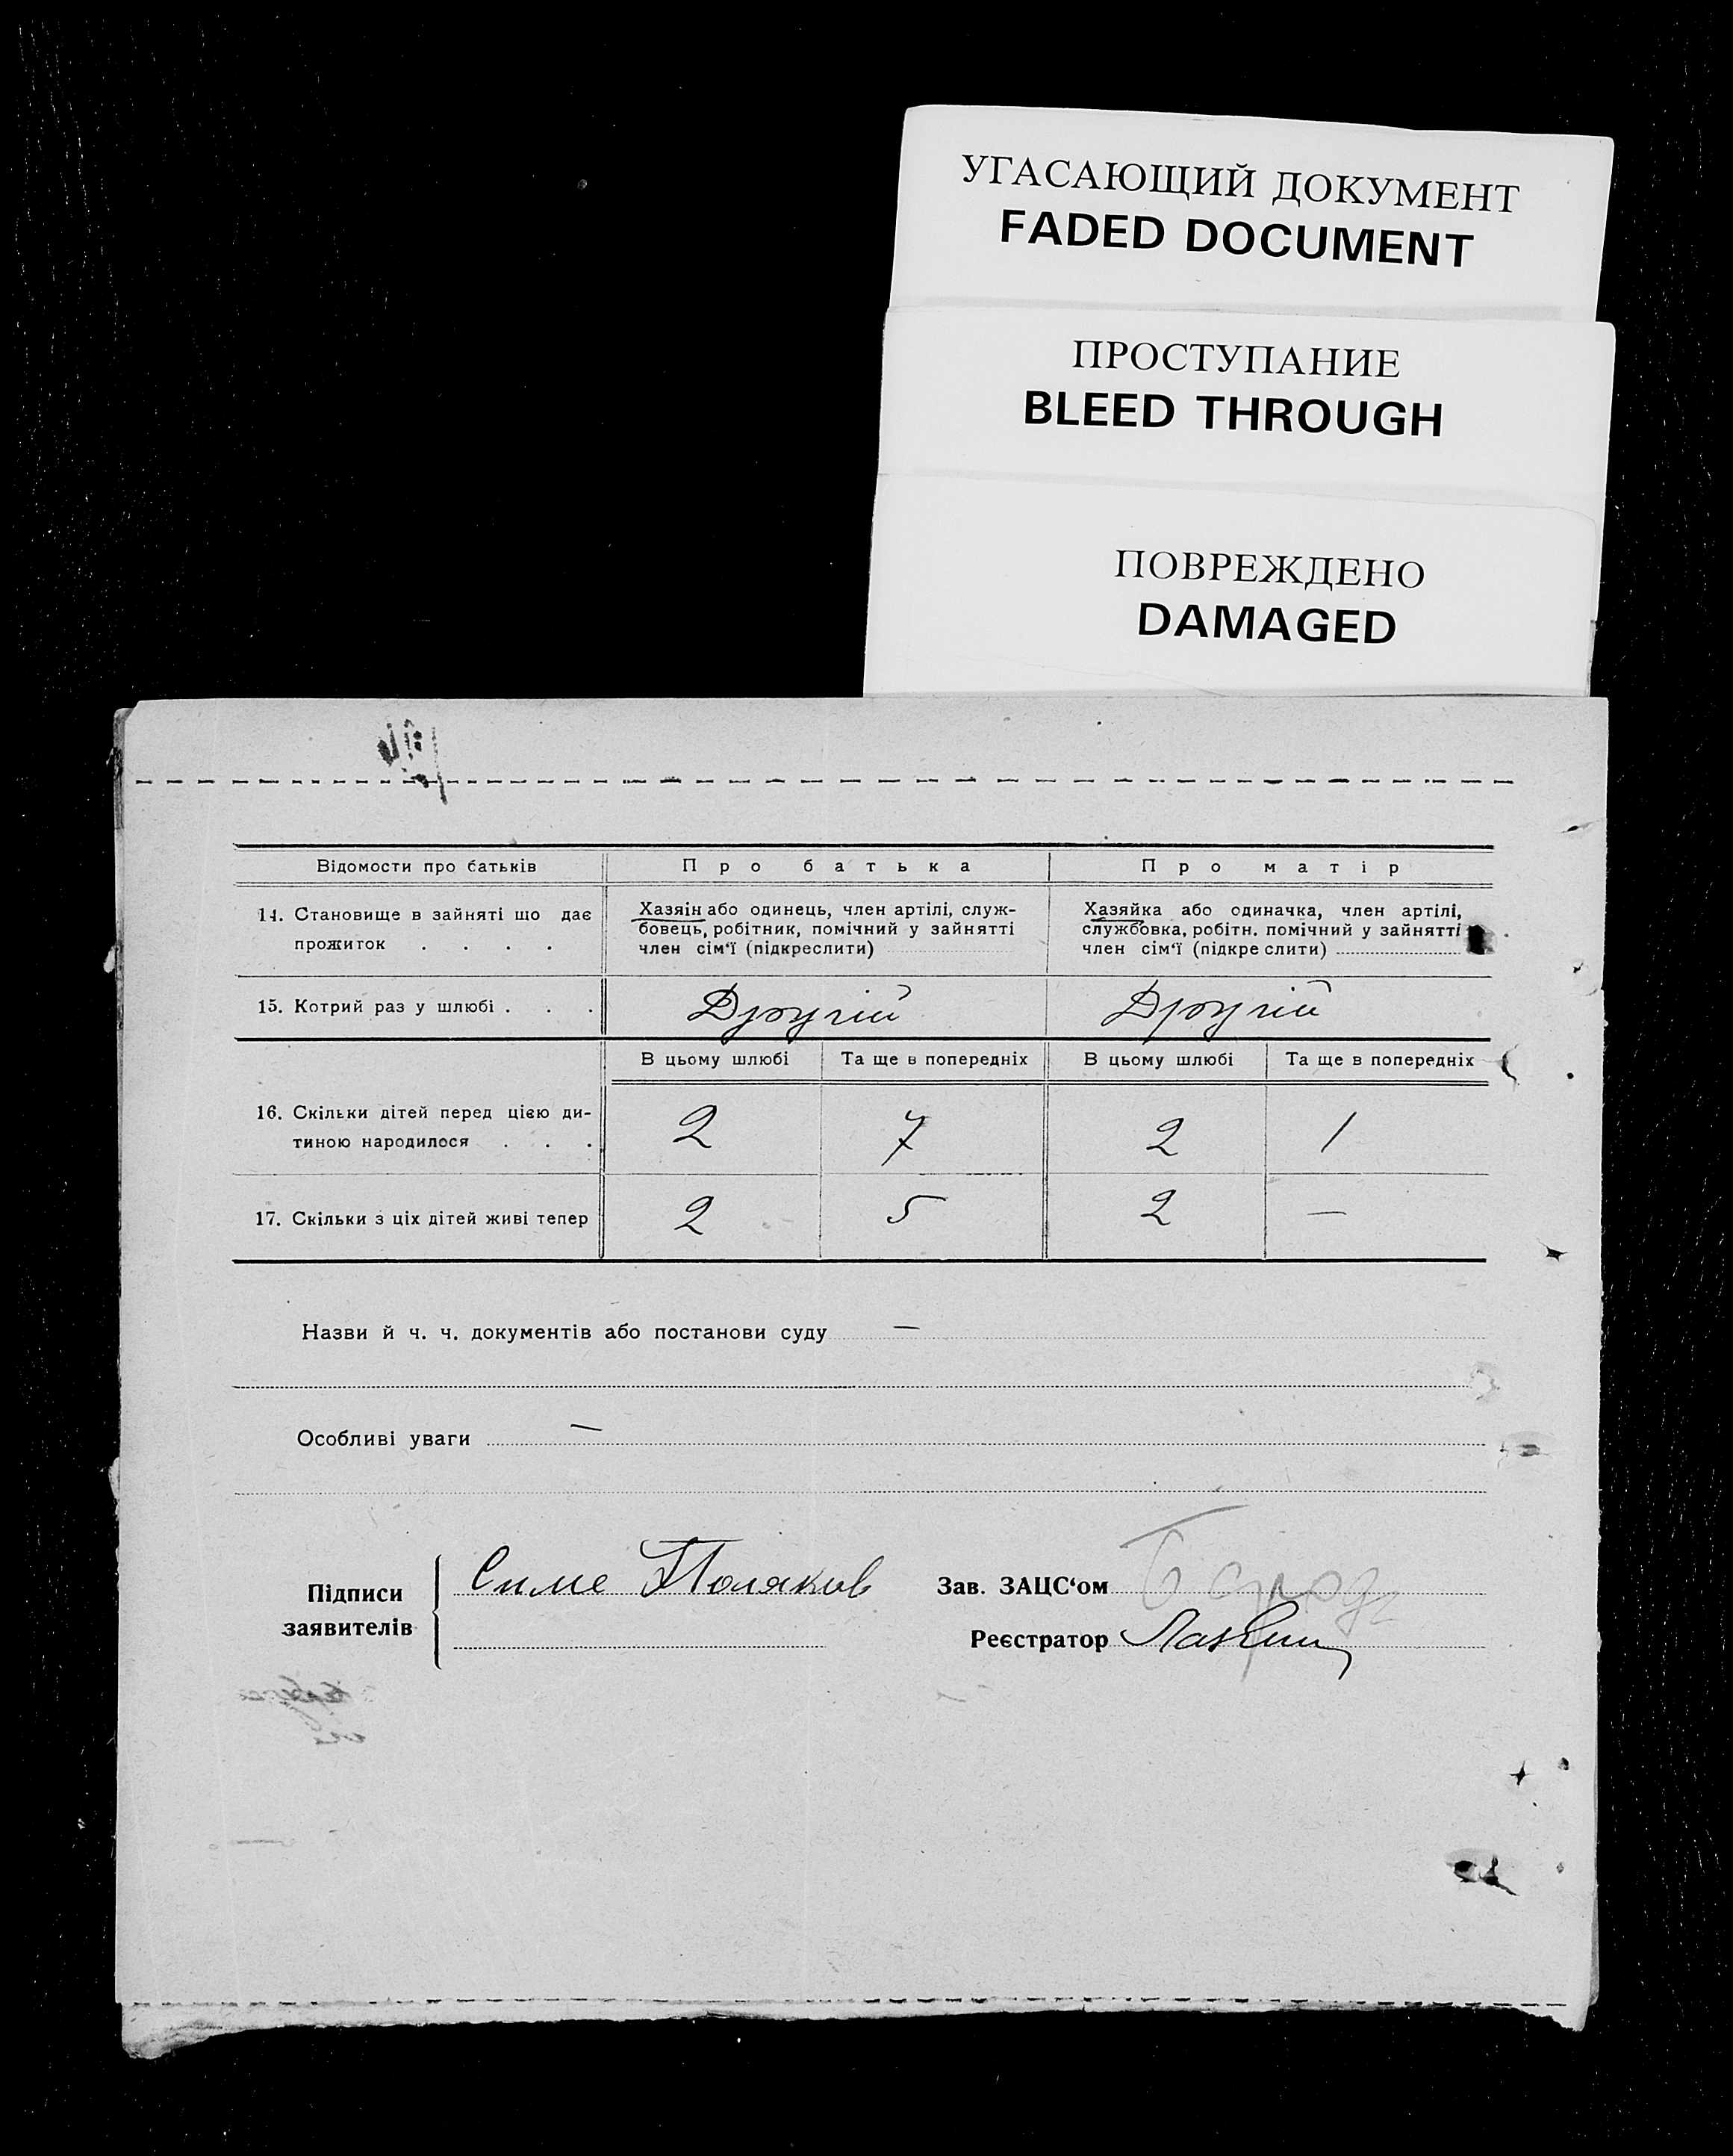 УГАСАЮЩИЙ ДОКУМЕНТ
FADED DOCUMENT
ПРОСТУПАНИЕ
BLEED THROUGH
ПОВРЕЖДЕНО
DAMAGED
Відомости про батьків Про батька Про матір
14. Становище в зайняті що дає прожиток . . . .
Хазяін або одинець, член артілі, служ-
бовець, робітник, помічний у зайнятті
член сім'ї (підкреслити)
Хазяйка або одиначка, член артілі,
службовка, робітн. помічний у зайнятті
член сім'ї (підкреслити)
15. Котрий раз у шлюбі . . . Другій Другій
В цьому шлюбі Та ще в попередніх В цьому шлюбі Та ще в попередніх
16. Скільки дітей перед цією ди-
тиною народилося . . . 2 7 2 1
17. Скільки з ціх дітей живі тепер 2 5 2 —
Назви й ч. ч. документів або постанови суду —
Особливі уваги —
Підписи
заявителів
Поляков
Зав. ЗАЦС'ом
Реєстратор